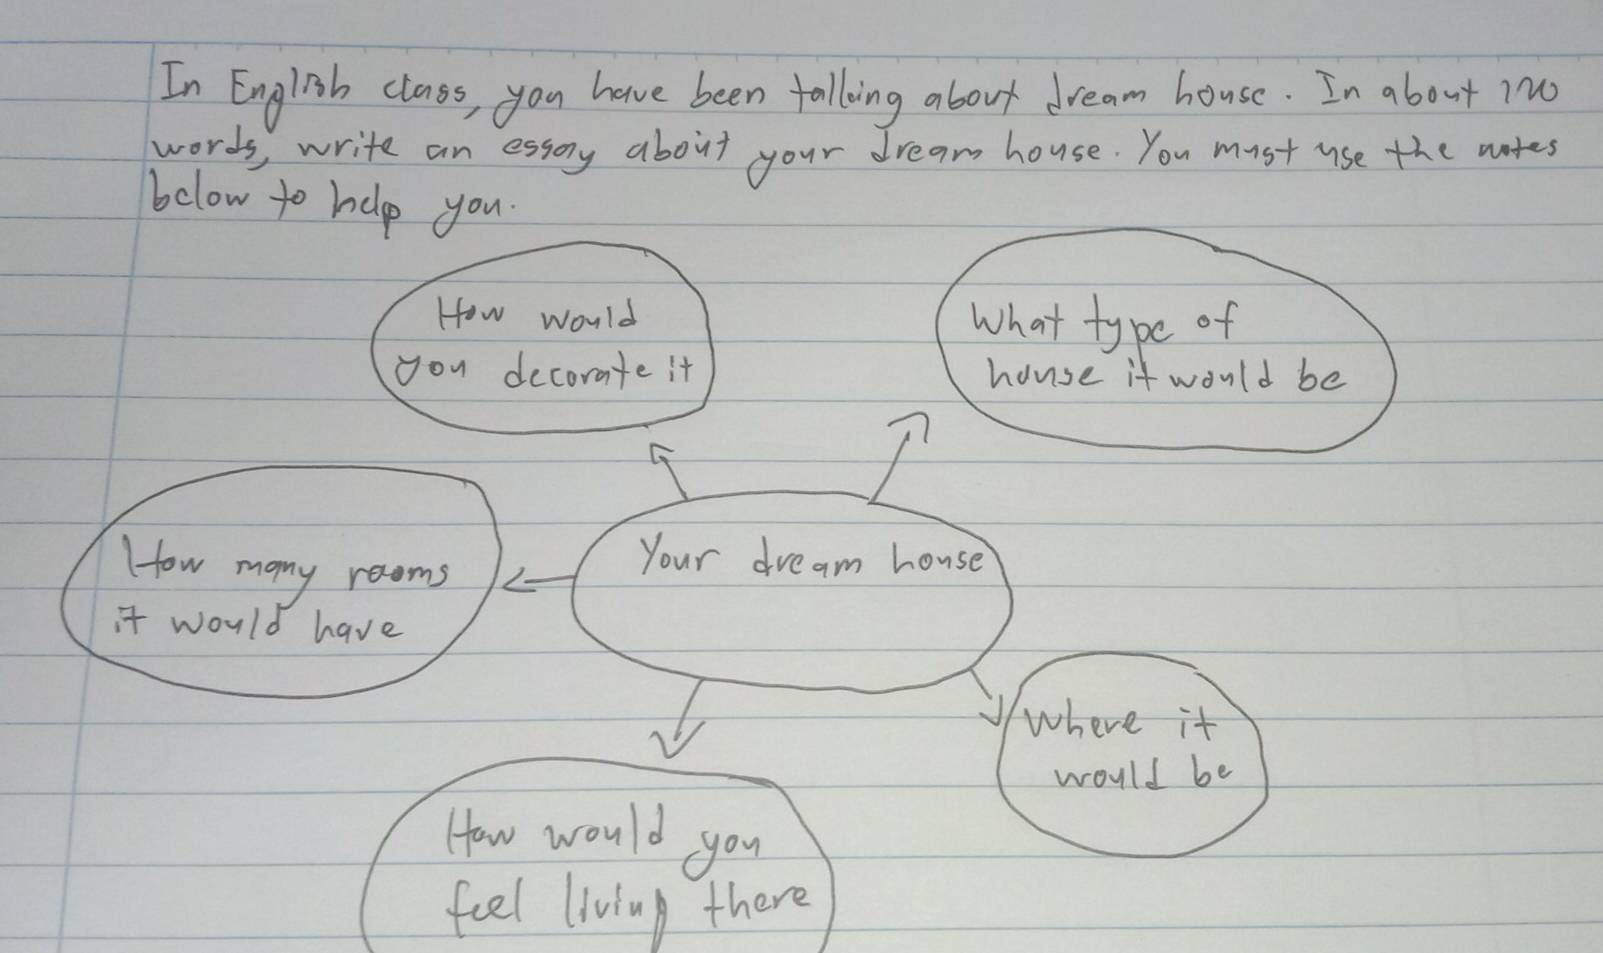 In English class, you have been talking about dream house. In about 120
words, write an essay about your dream house. You must use the notes
below to help you.
How would
you decorate it
What type of
house it would be
How many rooms
it would have
Your dream house
Where it
would be
How would you
feel living there